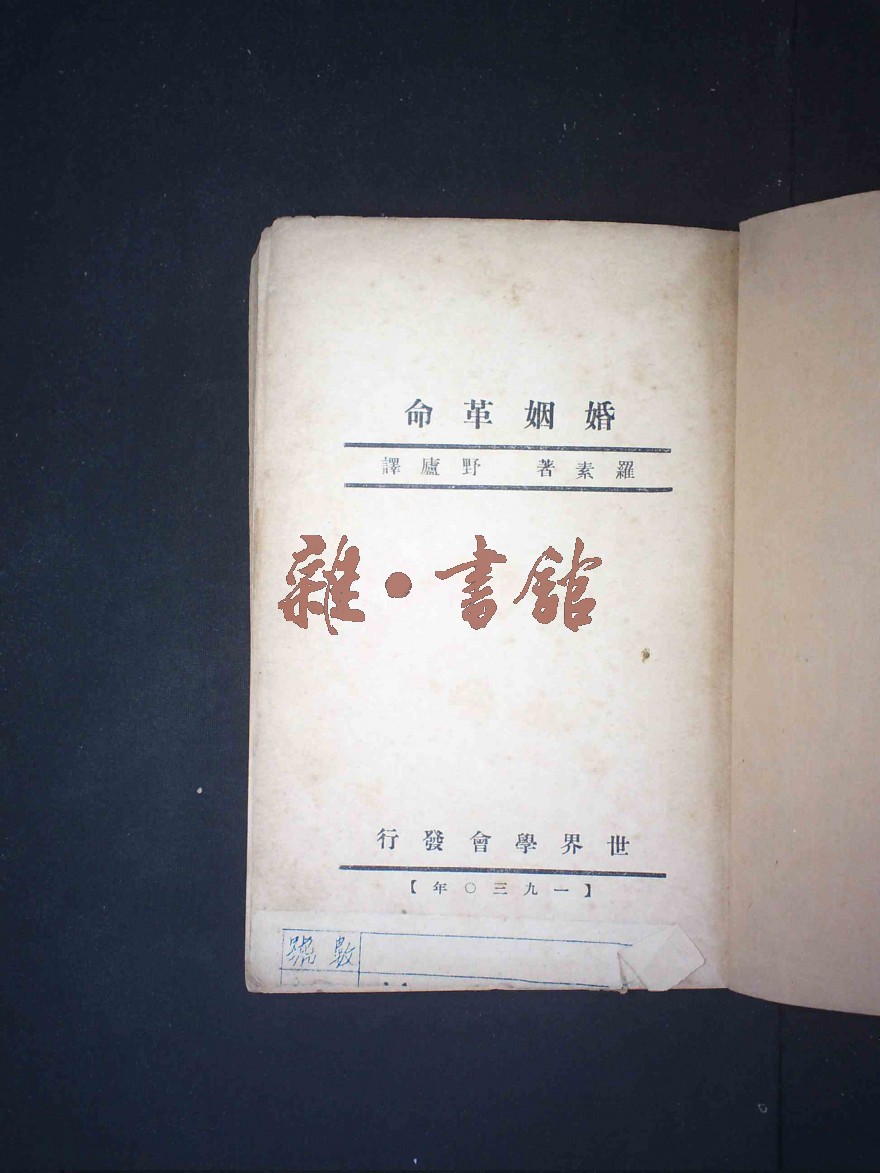 婚姻革命
羅素著 野廬譯
雜·書館
世界學會發行
【一九三〇年】
號數